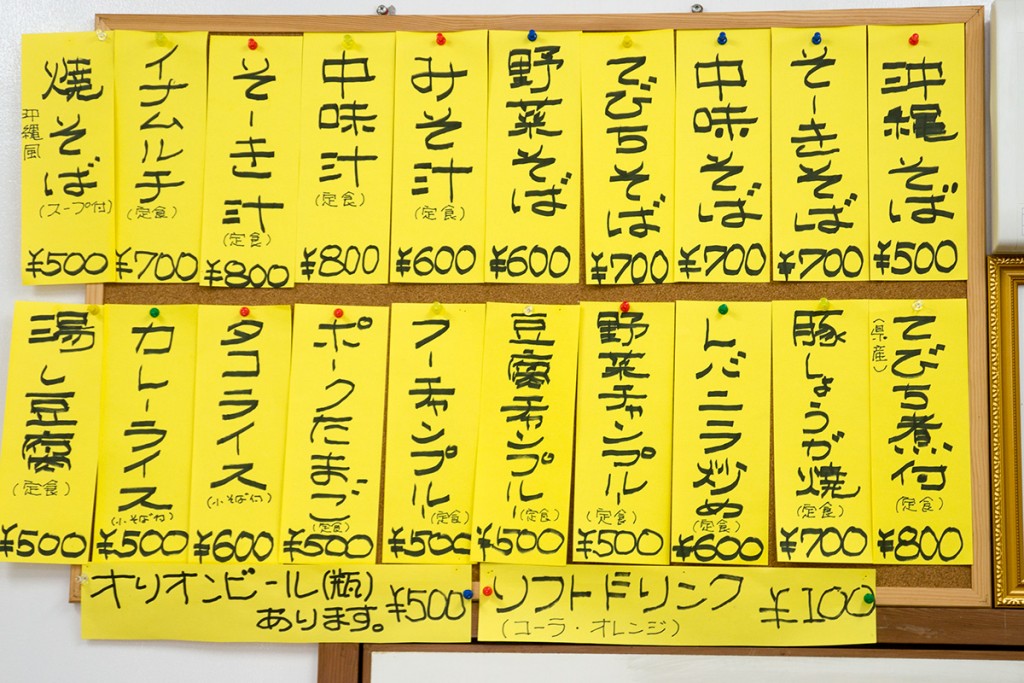 沖縄そば
¥500
そーきそば
¥700
中味そば
¥700
てびちそば
¥700
野菜そば
¥600
みそ汁
(定食)
¥600
中味汁
(定食)
¥800
そーき汁
(定食)
¥800
イナムルチ
(定食)
¥700
焼そば
沖縄風
(スープ付)
¥500
てびち煮付
(県産)
(定食)
¥800
豚しょうが焼
(定食)
¥700
レバニラ炒め
(定食)
¥600
野菜チャンプルー
(定食)
¥500
豆腐チャンプルー
(定食)
¥500
フーチャンプルー
(定食)
¥500
ポークたまご
(定食)
¥500
タコライス
(小そば付)
¥600
カレーライス
(小そば付)
¥500
湯し豆腐
(定食)
¥500
オリオンビール(瓶)
あります。
¥500
ソフトドリンク
(コーラ・オレンジ)
¥100